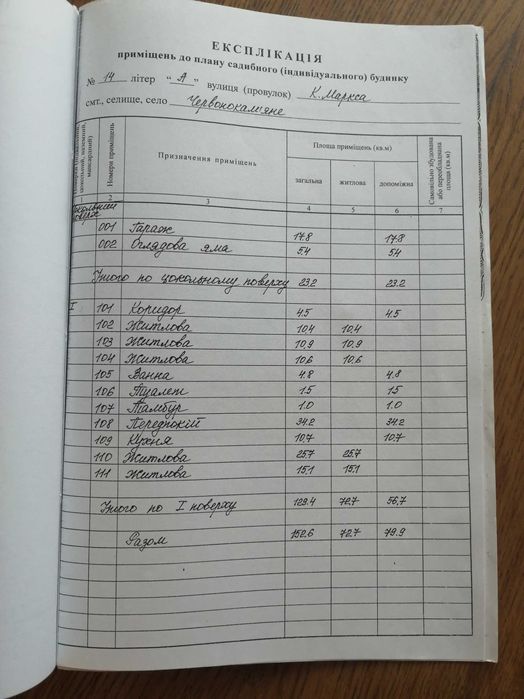 ЕКСПЛІКАЦІЯ
приміщень до плану садибного (індивідуального) будинку
№ 14 літер “ А ” вулиця (провулок) К. Маркса
смт., селище, село Червонокам'яне
цокольний, наземний, мансардний) Номери приміщень Призначення приміщень Площа приміщень (кв.м) Самовільно збудована або переобладнана площа (кв.м)
загальна житлова допоміжна
2 3 4 5 6 7
поверх
001 Гараж 17.8 17.8
002 Оглядова яма 5.4 5.4
Усього по цокольному поверху 23.2 23.2
I 101 Коридор 4.5 4.5
102 Житлова 10.4 10.4
103 Житлова 10,9 10,9
104 Житлова 10.6 10.6
105 Ванна 4.8 4.8
106 Туалет 1.5 1.5
107 Тамбур 1.0 1.0
108 Передпокій 34.2 34.2
109 Кухня 10.7 10.7
110 Житлова 25.7 25.7
111 Житлова 15,1 15,1
Усього по I поверху 129.4 72.7 56,7
Разом 152.6 72.7 79.9